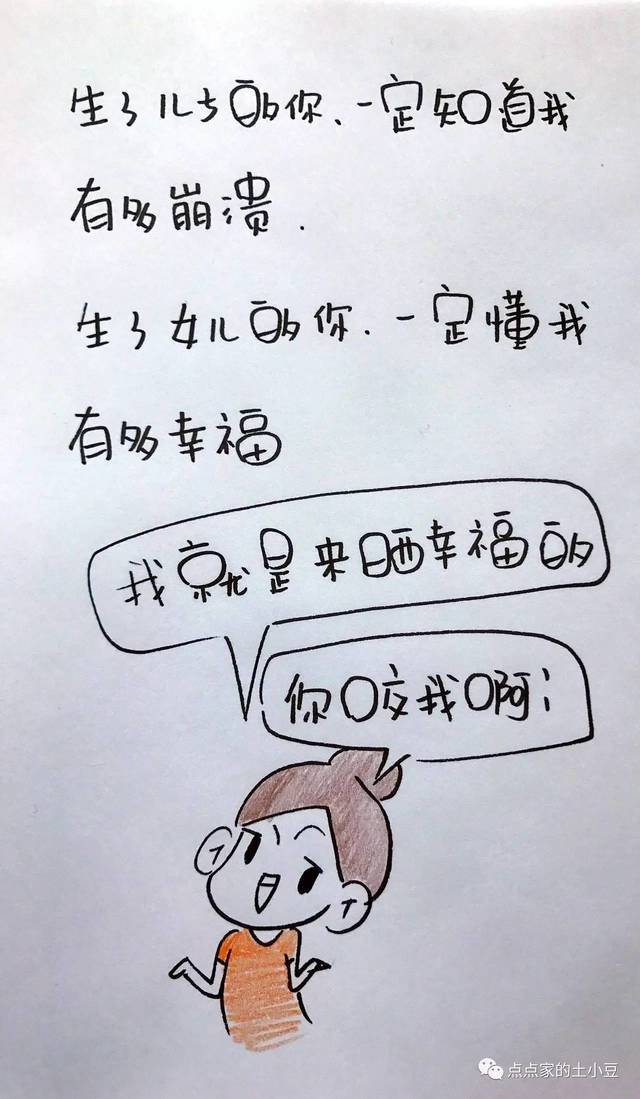 生了儿子的你、一定知道我
有多崩溃.
生了女儿的你、一定懂我
有多幸福
我就是来晒幸福的
你咬我啊!
点点家的土小豆